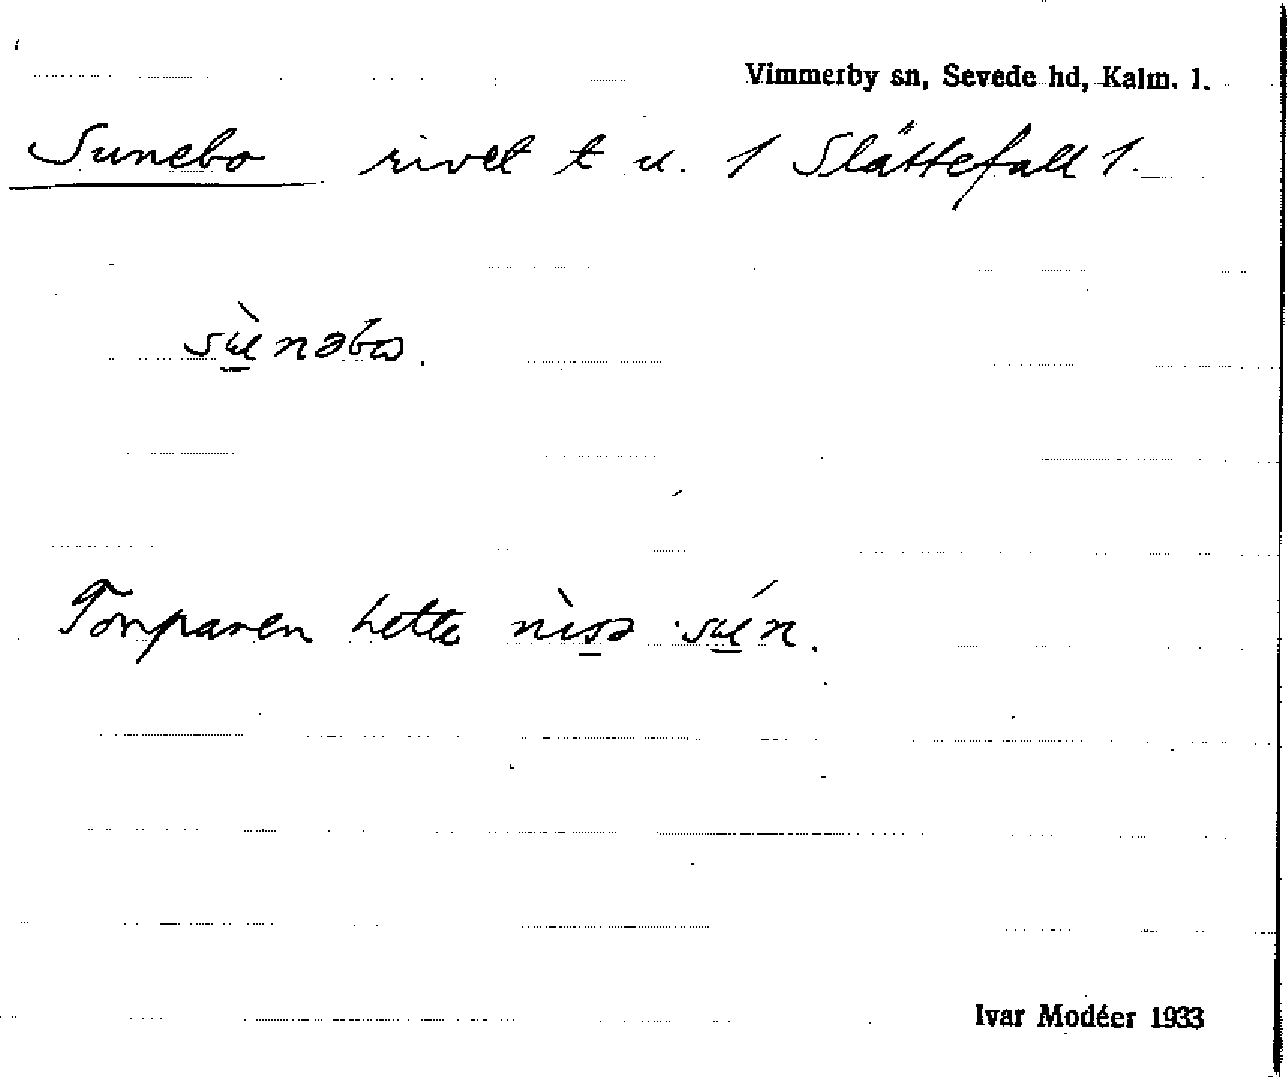 Vimmerby sn, Sevede hd, Kalm. l.
Sunebo rivet t u. / Slättefall /.
sù̠nəbω.
Torparen hette nìs̠ə sú̠n.
Ivar Modéer 1933